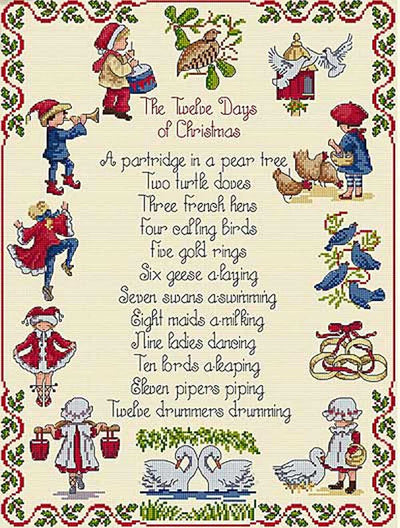 The Twelve Days
of Christmas
A partridge in a pear tree
Two turtle doves
Three french hens
Four calling birds
Five gold rings
Six geese a-laying
Seven swans a-swimming
Eight maids a-milking
Nine ladies dancing
Ten lords a-leaping
Eleven pipers piping
Twelve drummers drumming